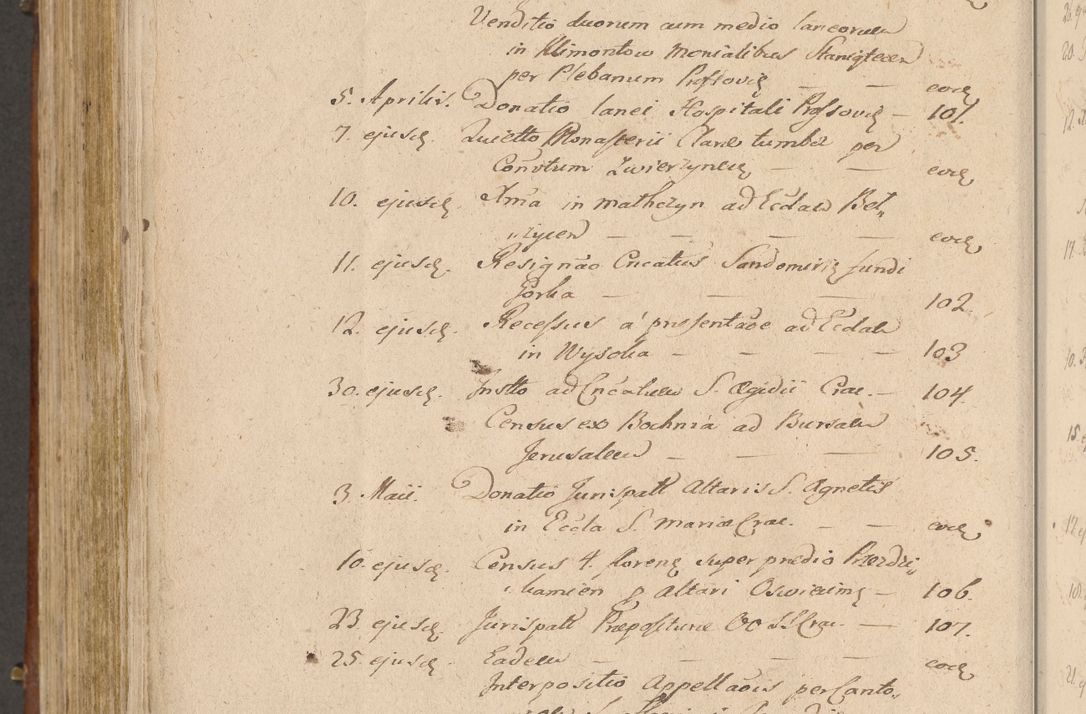 Venditio duorum cum medio laneorum
in Klimontow Monialibus Staniątecen
per Plebanum Prossovię — — eodę
5. Aprilis. Donatio lanei Hospitali Prossovię — 101.
7. ejusdę Quietto Monasterii Claræ tumbæ per
Conv̄tum Zwierzyncen — — eodę
10. ejusdę. in Mathczyn ad Eccl̄am Bel„
„zycen — — — — eodę
11. ejusdę. Resignāo Cnc̄atus Sandomirię fundi
Gorka — — — 102.
12. ejusdę. Recessus á præsentāoe ad Eccl̄am
in Wysoka — — — — 103
30. ejusdę. Instto ad Cnc̄atum S. Ægidii Crac. — 104.
Census ex Bochnia ad Bursam
Jerusalem — — — 105.
3. Maii. Donatio Jurispatt Altaris S. Agnetis
in Eccl̄a S. Mariæ Crac. — — eodę
10. ejusdę. Census 4. florenę super prædio Przezdzi„
„kamien p Altari Oswiecimę — 106.
23. ejusdę. Jurispatt Præpositure OO SS Crac. — 107.
25. ejusdę. Eadem — — — — eodę
Interpositio Appellāois per Canto„